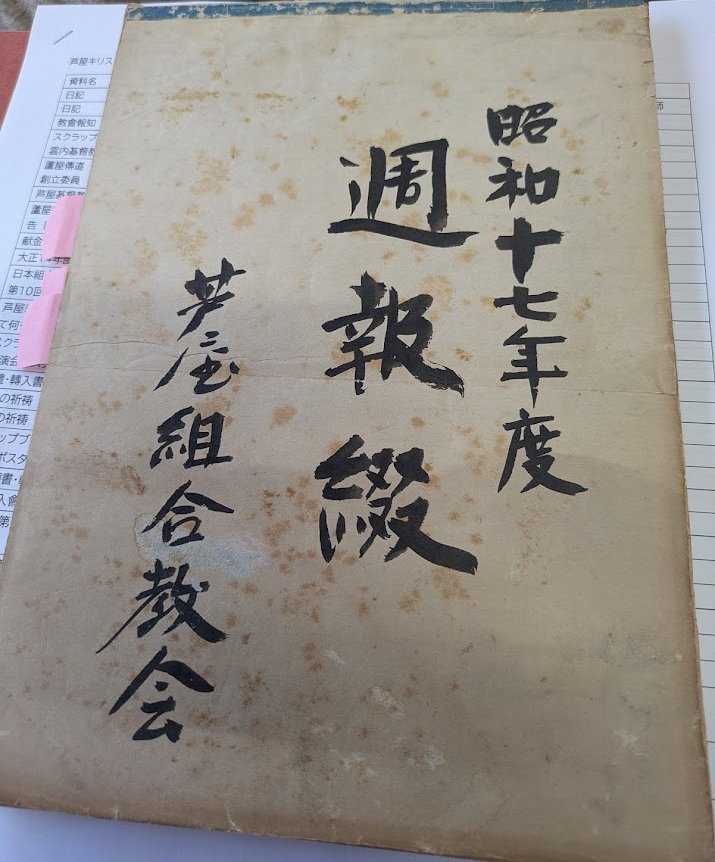 昭和十七年度
週報綴
芦屋組合教会
芦屋キリス
資料名
日記
日記
教會報知
スクラップ
雲内基督教
蘆屋傳道
創立委員
芦屋基督教
蘆屋
献金
大正14年度
日本組
第10回
芦屋
て何
スクラ
演会
・轉入書
の祈祷
の祈祷
ップブ
ポスタ
入會
第
師